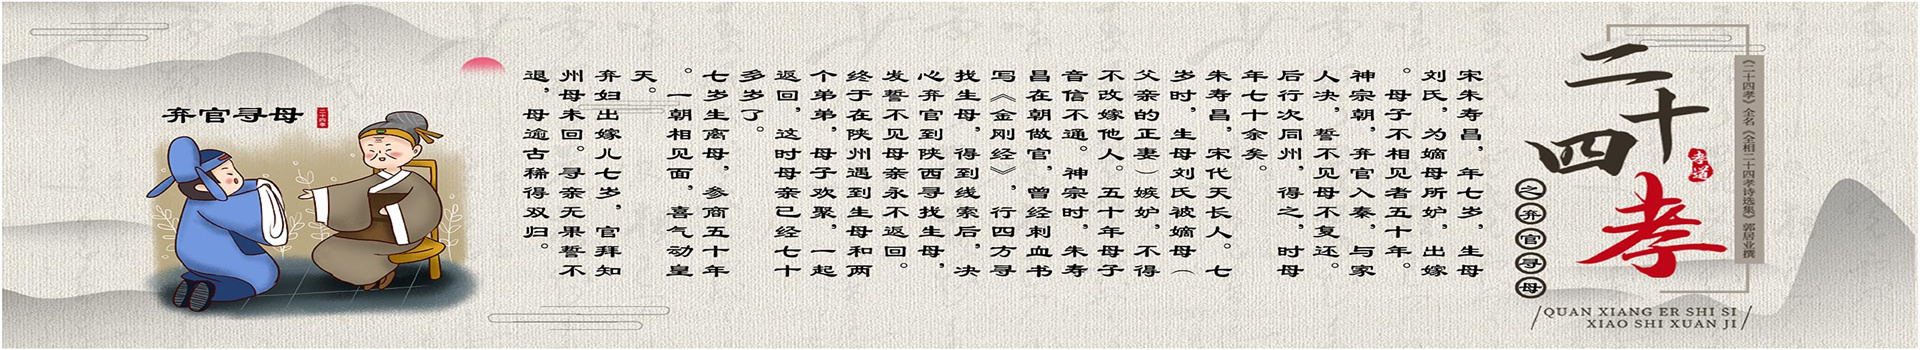 《二十四孝》全名《全相二十四孝诗选集》郭居业撰
二十四孝
孝道
之弃官寻母
QUAN XIANG ER SHI SI
XIAO SHI XUAN JI
宋朱寿昌，年七岁，生母
刘氏，为嫡母所妒，出嫁
。母子不相见者五十年。
神宗朝，弃官入秦，与家
人决，誓不见母不复还。
后行次同州，得之，时母
年七十余矣。
朱寿昌，宋代天长人。七
岁时，生母刘氏被嫡母（
父亲的正妻）嫉妒，不得
不改嫁他人。五十年母子
音信不通。神宗时，朱寿
昌在朝做官，曾经刺血书
写《金刚经》，行四方寻
找生母，得到线索后，决
心弃官到陕西寻找生母，
发誓不见母亲永不返回。
终于在陕州遇到生母和两
个弟弟，母子欢聚，一起
返回，这时母亲已经七十
多岁了。
七岁生离母，参商五十年
。一朝相见面，喜气动皇
天。
弃妇出嫁儿七岁，官拜知
州母未回。寻亲无果誓不
退，母逾古稀得双归。
弃官寻母
二十四孝